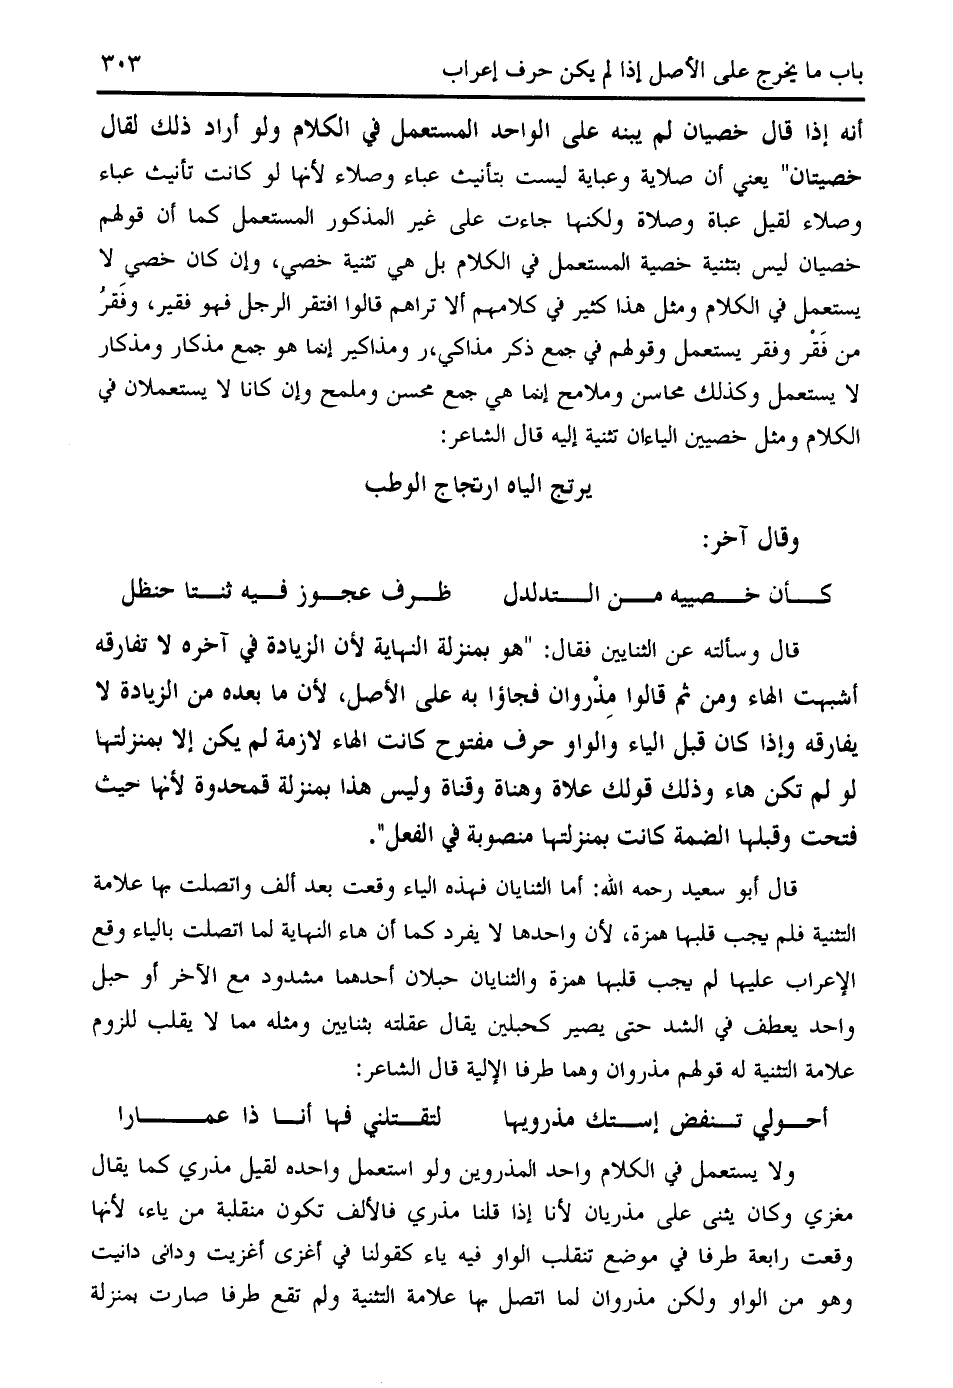 باب ما يخرج على الأصل إذا لم يكن حرف إعراب ٣٠٣
أنه إذا قال خصيان لم يبنه على الواحد المستعمل في الكلام ولو أراد ذلك لقال
خصيتان" يعني أن صلاية وعباية ليست بتأنيث عباء وصلاء لأنها لو كانت تأنيث عباء
وصلاء لقيل عباة وصلاة ولكنها جاءت على غير المذكور المستعمل كما أن قولهم
خصيان ليس بتثنية خصية المستعمل في الكلام بل هي تثنية خصي، وإن كان خصي لا
يستعمل في الكلام ومثل هذا كثير في كلامهم ألا تراهم قالوا افتقر الرجل فهو فقير، وفَقرُ
من فَقْر وفقر يستعمل وقولهم في جمع ذكر مذاكي،ر ومذاكير إنما هو جمع مذكار ومذكار
لا يستعمل وكذلك محاسن وملامح إنما هي جمع محسن وملمح وإن كانا لا يستعملان في
الكلام ومثل خصيين الياءان تثنية إليه قال الشاعر:
يرتج الياه ارتجاج الوطب
وقال آخر:
كـــأن خـــصييه مـــن الـــتدلدل ظـــرف عجـــوز فـــيه ثنـــتا حنظل
قال وسألته عن الثنايين فقال: "هو بمنزلة النهاية لأن الزيادة في آخره لا تفارقه
أشبهت الهاء ومن ثم قالوا مِذْروان فجاؤا به على الأصل، لأن ما بعده من الزيادة لا
يفارقه وإذا كان قبل الياء والواو حرف مفتوح كانت الهاء لازمة لم يكن إلا بمنزلتها
لو لم تكن هاء وذلك قولك علاة وهناة وقناة وليس هذا بمنزلة قمحدوة لأنها حيث
فتحت وقبلها الضمة كانت بمنزلتها منصوبة في الفعل".
قال أبو سعيد رحمه الله: أما الثنايان فهذه الياء وقعت بعد ألف واتصلت بها علامة
التثنية فلم يجب قلبها همزة، لأن واحدها لا يفرد كما أن هاء النهاية لما اتصلت بالياء وقع
الإعراب عليها لم يجب قلبها همزة والثنايان حبلان أحدهما مشدود مع الآخر أو حبل
واحد يعطف في الشد حتى يصير كحبلين يقال عقلته بثنايين ومثله مما لا يقلب للزوم
علامة التثنية له قولهم مذروان وهما طرفا الإلية قال الشاعر:
أحـــولي تـــنفض إســـتك مذرويها لتقـــتلني فها أنـــا ذا عمـــارا
ولا يستعمل في الكلام واحد المذروين ولو استعمل واحده لقيل مذري كما يقال
مغزي وكان يثنى على مذريان لأنا إذا قلنا مذري فالألف تكون منقلبة من ياء، لأنها
وقعت رابعة طرفا في موضع تنقلب الواو فيه ياء كقولنا في أغزى أغزيت ودانى دانيت
وهو من الواو ولكن مذروان لما اتصل بها علامة التثنية ولم تقع طرفا صارت بمنزلة